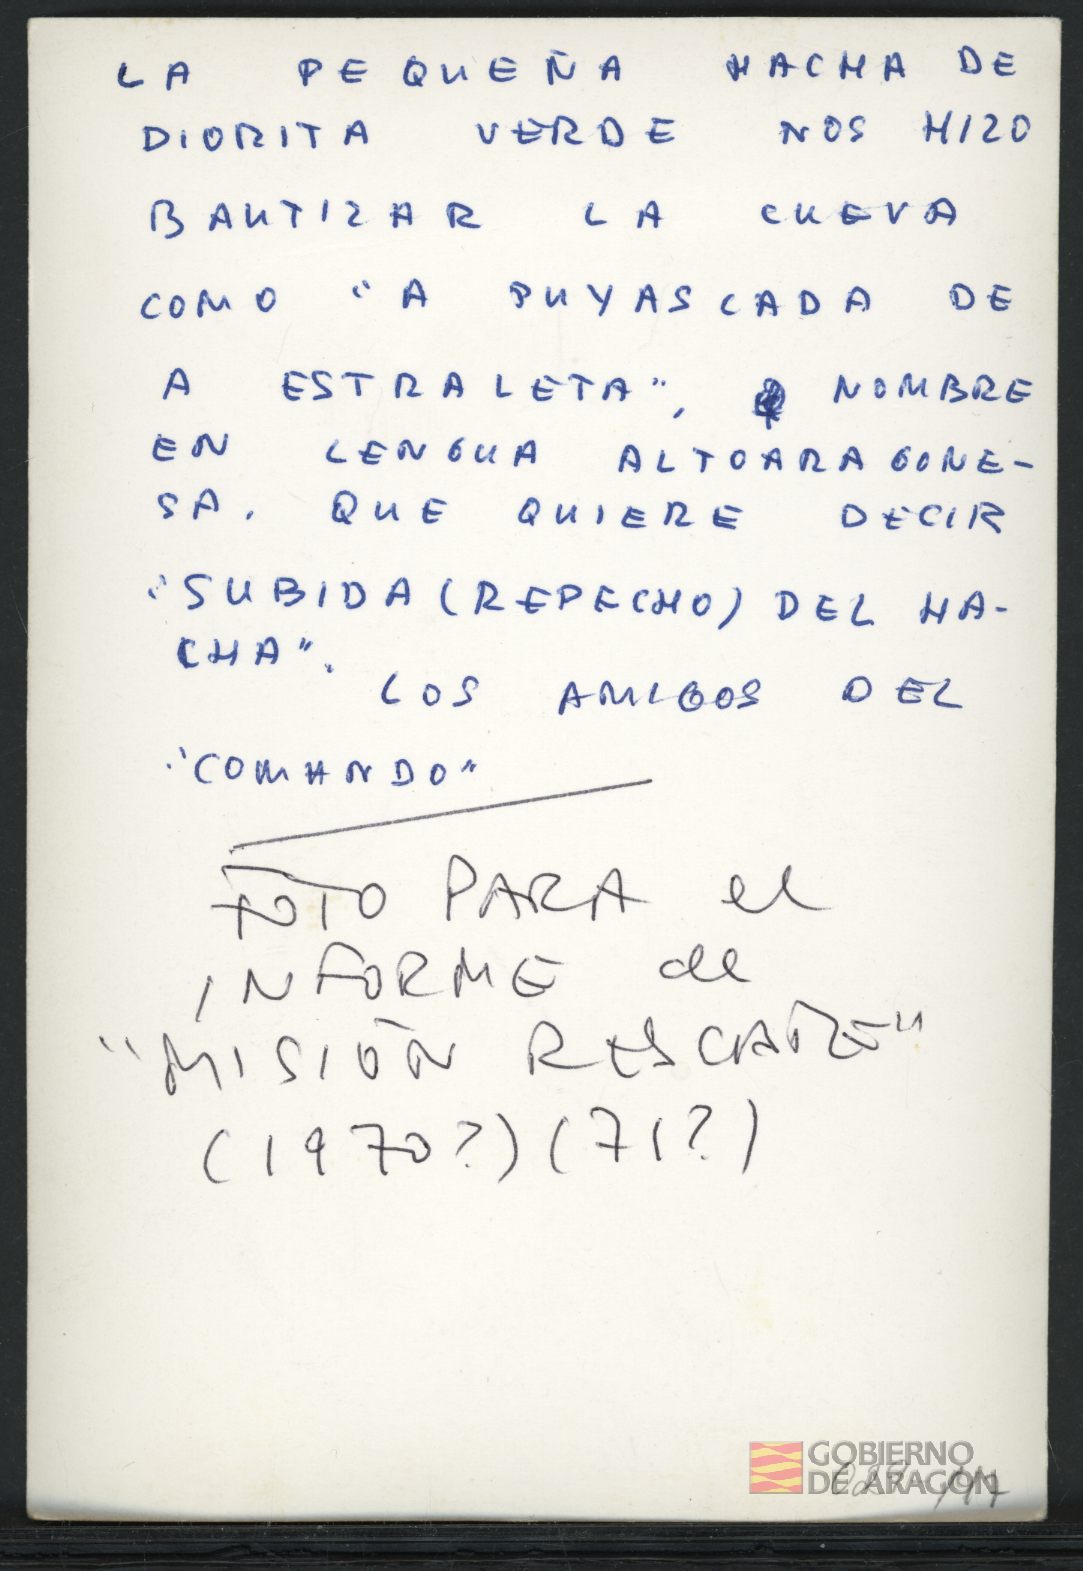 LA PEQUEÑA HACHA DE
DIORITA VERDE NOS HIZO
BAUTIZAR LA CUEVA
COMO "A PUYASCADA DE
A ESTRALETA", NOMBRE
EN LENGUA ALTOARAGONE-
SA. QUE QUIERE DECIR
"SUBIDA (REPECHO) DEL HA-
CHA".
LOS AMIGOS DEL
"COMANDO"
FOTO PARA el
INFORME de
"MISIÓN RESCATE"
(1970?) (71?)
GOBIERNO
DE ARAGON